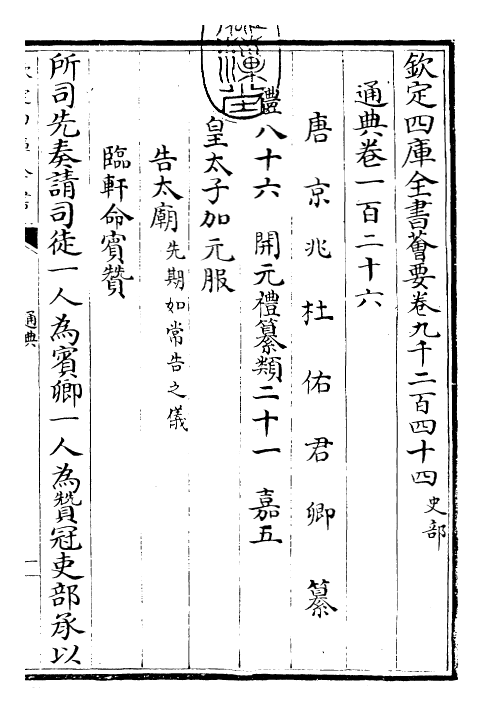 欽定四庫全書薈要卷九千二百四十四 史部
通典卷一百二十六
唐京兆杜佑君卿纂
禮八十六 開元禮纂類二十一 嘉五
皇太子加元服
告太廟 先期如常告之儀
臨軒命賓贊
所司先奏請司徒一人為賓卿一人為贊冠吏部承以
通典